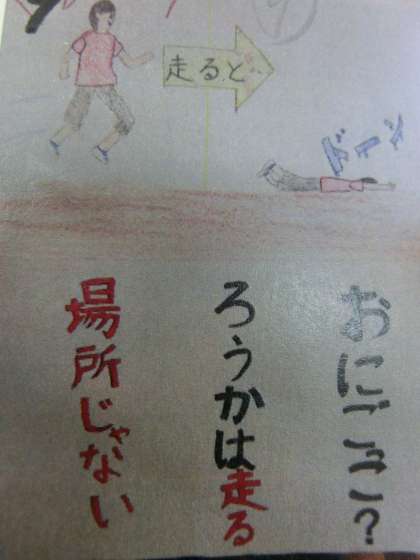 走ると…
ドーン
おにごっこ?
ろうかは走る
場所じゃない